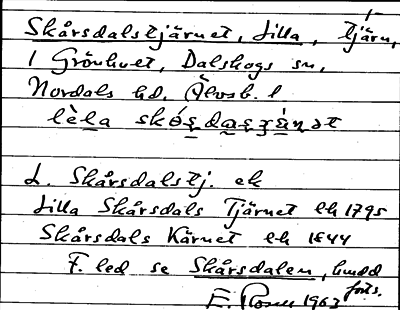 Skårsdalstjärnet, Lilla, tjärn,
i Grönhult, Dalskogs sn,
Nordals hd, Älvsb. l
L. Skårsdalstj. ek
Lilla Skårsdals Tjärnet lk 1795
Skårsdals Kärnet lk 1844
F. led se Skårsdalen,
forts.
E. Rosen 1963